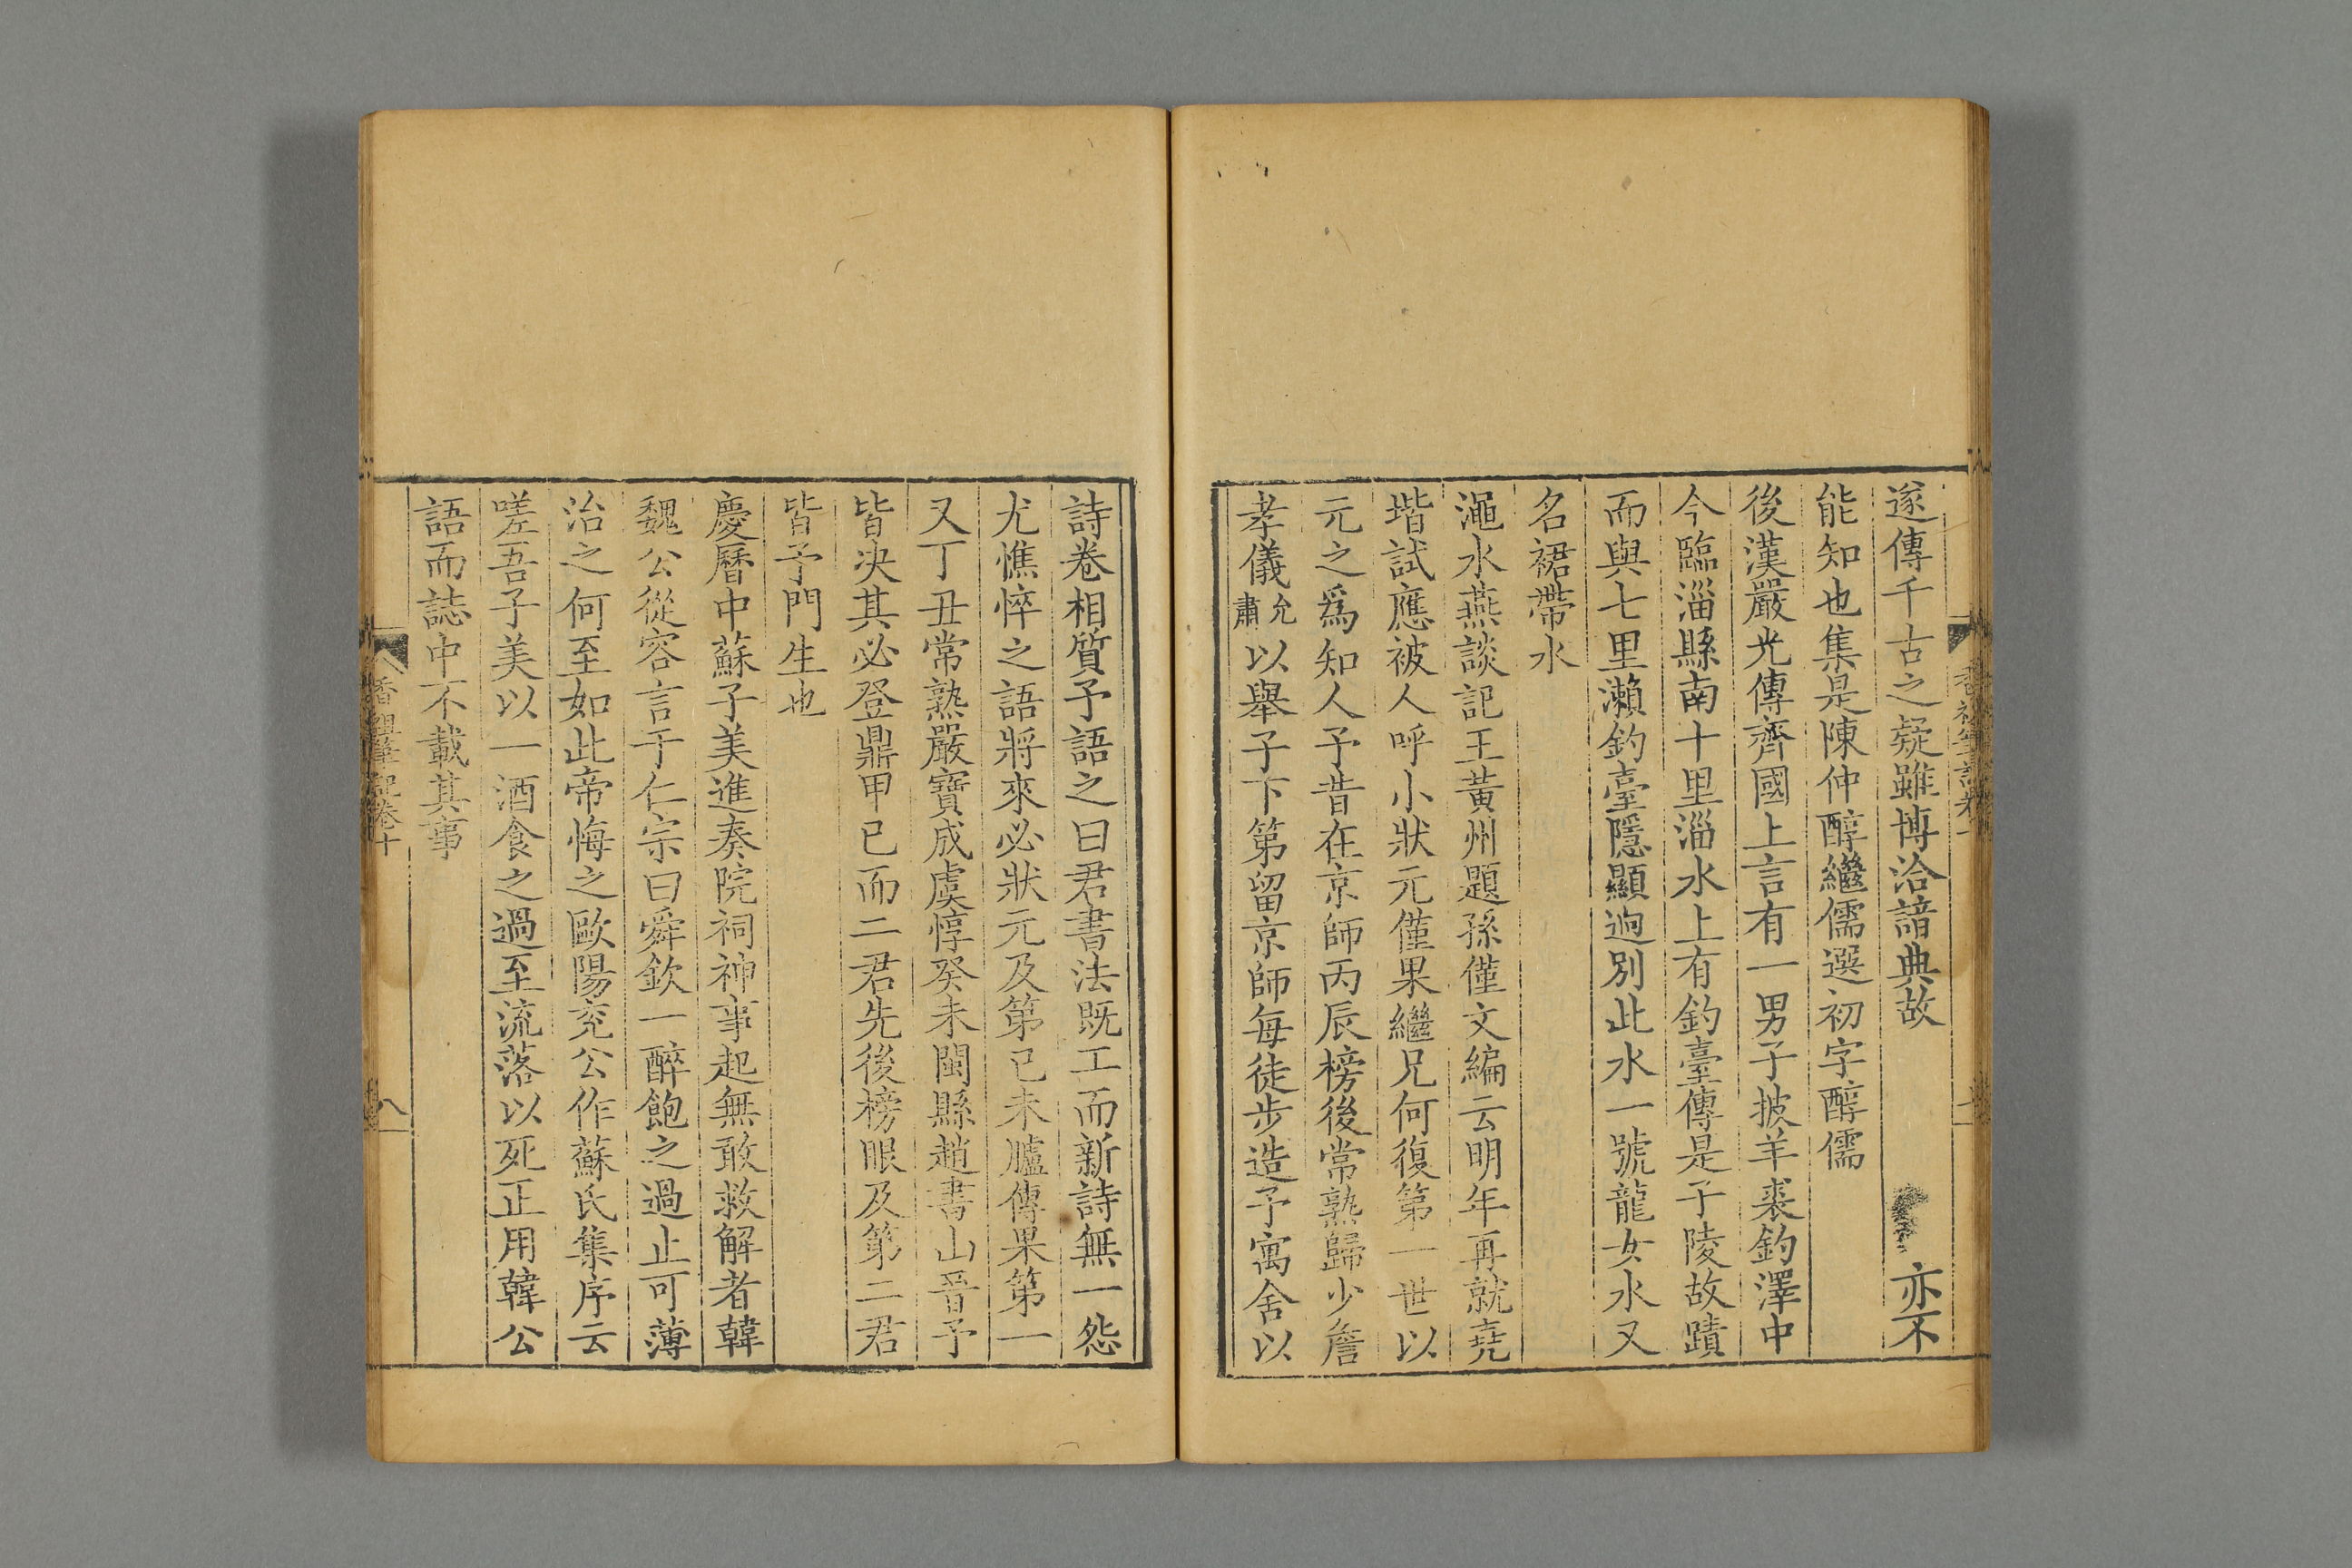 遂傳千古之疑雖博洽諳典故亦不
能知也集是陳仲醇繼儒選初字醇儒
後漢嚴光傳齊國上言有一男子披羊裘釣澤中
今臨淄縣南十里淄水上有釣臺傳是子陵故蹟
而與七里瀨釣臺隱顯逈別此水一號龍女水又
名裙帶水
澠水燕談記王黃州題孫僅文編云明年再就堯
堦試應被人呼小狀元僅果繼兄何復第一世以
元之爲知人予昔在京師丙辰榜後常熟歸少詹
孝儀允肅以舉子下第留京師每徒步造予寓舍以
詩卷相質予語之曰君書法既工而新詩無一怨
尤憔悴之語將來必狀元及第己未臚傳果第一
又丁丑常熟嚴寶成虞惇癸未閩縣趙書山晉予
皆决其必登鼎甲已而二君先後榜眼及第二君
皆予門生也
慶曆中蘇子美進奏院祠神事起無敢救解者韓
魏公從容言于仁宗曰舜欽一醉飽之過止可薄
治之何至如此帝悔之歐陽兖公作蘇氏集序云
嗟吾子美以一酒食之過至流落以死正用韓公
語而誌中不載其事
香祖筆記卷十
八